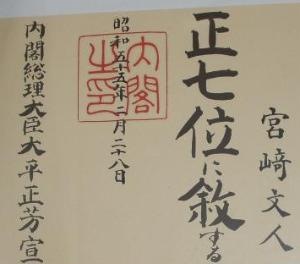 宮﨑文人
正七位に敘する
昭和五十五年二月二十八日
内閣之印
内閣総理大臣大平正芳宣